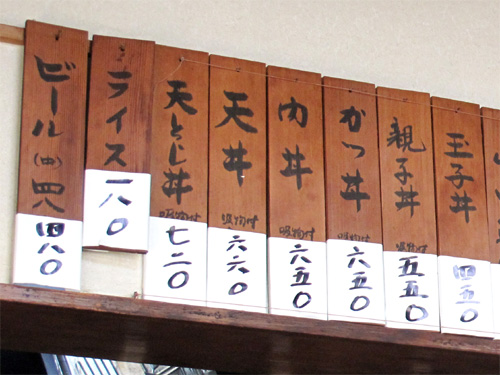 ビール(中)四八
四八〇
ライス
一八〇
天とじ丼
吸物付
七二〇
天丼
吸物付
六六〇
肉丼
吸物付
六五〇
かつ丼
吸物付
六五〇
親子丼
吸物付
五五〇
玉子丼
四五〇